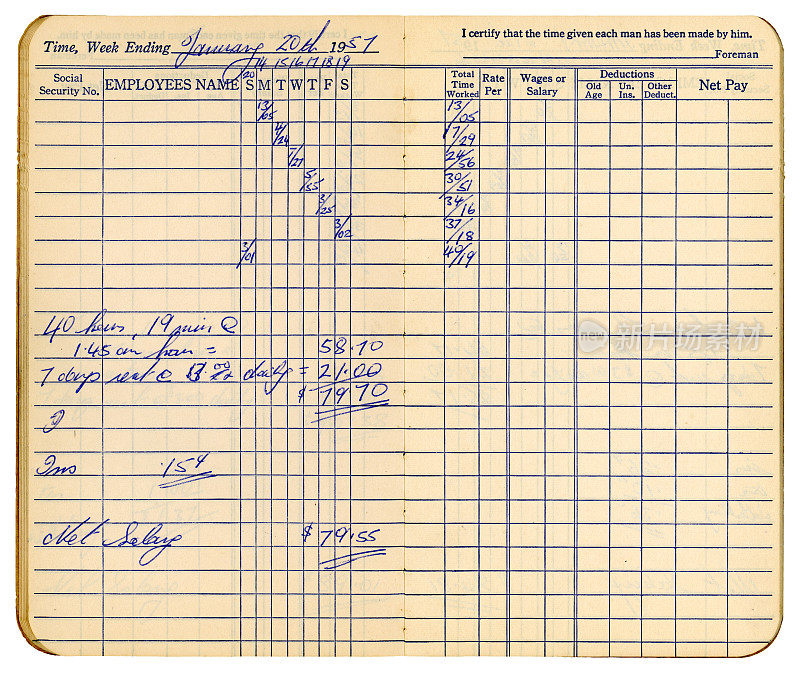 Time, Week Ending January 20th 1957
I certify that the time given each man has been made by him.
Foreman
20 14 15 16 17 18 19
Social Security No. EMPLOYEES NAME S M T W T F S Total Time Worked Rate Per Wages or Salary Deductions Old Age Un. Ins. Other Deduct. Net Pay
13/05 13/05
4/24 17/29
7/27 24/56
5/55 30/51
3/25 34/16
3/02 37/18
3/01 40/19
40 hours, 19 min @
1.45 an hour = 58.70
7 days @ daily = 21.00
$ 79 70
Ins .15¢
Net Salary $ 79.55
new 新片场素材